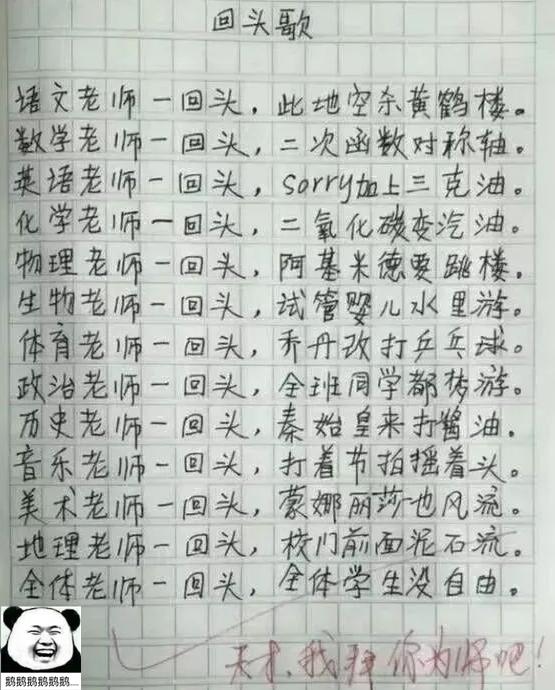 回头歌
语文老师一回头，此地空余黄鹤楼。
数学老师一回头，二次函数对称轴。
英语老师一回头，sorry加上三克油。
化学老师一回头，二氧化碳变汽油。
物理老师一回头，阿基米德要跳楼。
生物老师一回头，试管婴儿水里游。
体育老师一回头，乔丹改打乒乓球。
政治老师一回头，全班同学都梦游。
历史老师一回头，秦始皇来打酱油。
音乐老师一回头，打着节拍摇着头。
美术老师一回头，蒙娜丽莎也风流。
地理老师一回头，校门前面泥石流。
全体老师一回头，全体学生没自由。
天才，我拜你为师吧！
鹅鹅鹅鹅鹅鹅……